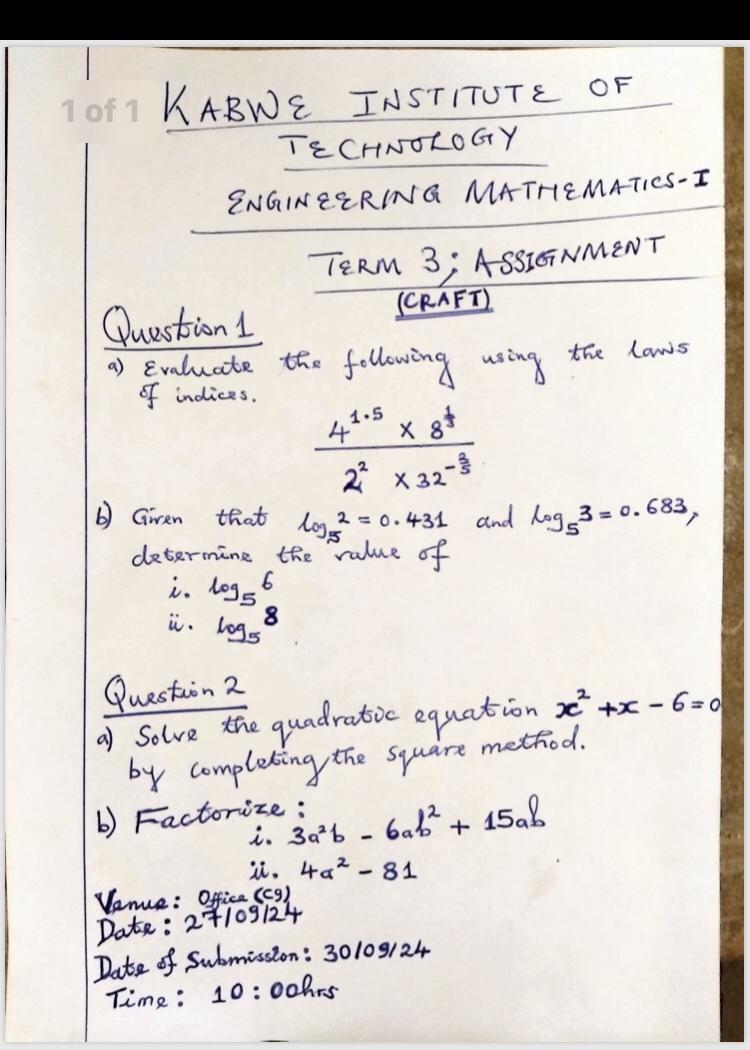 1 of 1
KABWE INSTITUTE OF
TECHNOLOGY
ENGINEERING MATHEMATICS-I
TERM 3; ASSIGNMENT
(CRAFT)
Question 1
a) Evaluate the following using the laws
of indices.
4^1.5 × 8^(1/3)
2^2 × 32^(-2/5)
b) Given that log₅2 = 0.431 and log₅3 = 0.683,
determine the value of
i. log₅6
ii. log₅8
Question 2
a) Solve the quadratic equation x² + x - 6 = 0
by completing the square method.
b) Factorize :
i. 3a²b - 6ab² + 15ab
ii. 4a² - 81
Venue: Office (C9)
Date: 27/09/24
Date of Submission: 30/09/24
Time: 10:00hrs